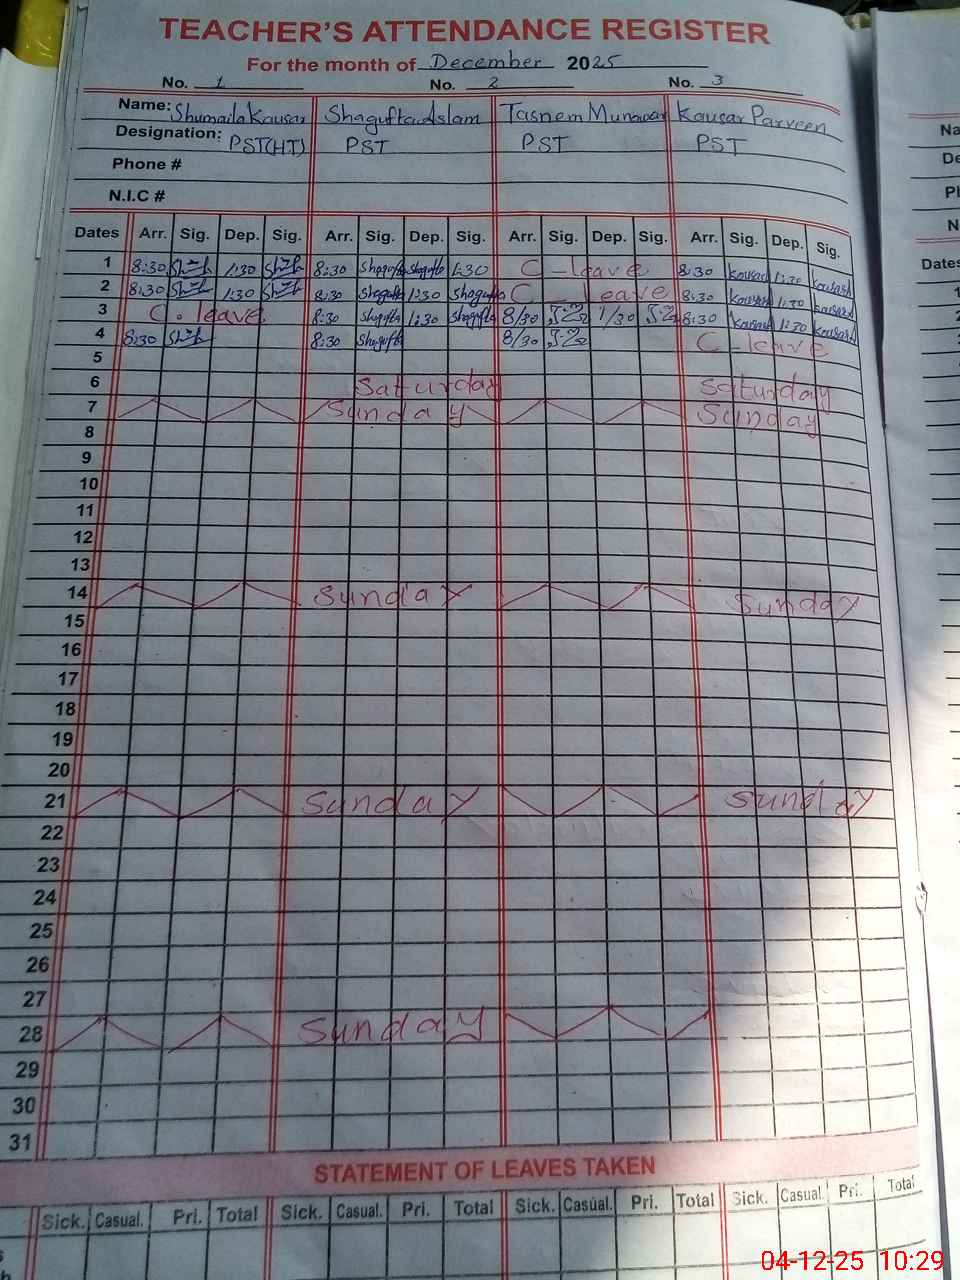 TEACHER'S ATTENDANCE REGISTER
For the month of December 2025
No. 1 No. 2 No. 3
Name: Shumaila Kausar Shagufta Aslam Tasnem Munawar Kausar Parveen
Designation: PST(HT) PST PST PST
Phone #
N.I.C #
Dates Arr. Sig. Dep. Sig. Arr. Sig. Dep. Sig. Arr. Sig. Dep. Sig. Arr. Sig. Dep. Sig.
1 8:30 1:30 8:30 Shagufta Shagufta 1:30 C-leave 8:30 Kousar 1:30 Kousar
2 8:30 1:30 8:30 Shagufta 1:30 Shagufta C-leave 8:30 Kousar 1:30 Kousar
3 C.leave 8:30 Shagufta 1:30 Shagufta 8/30 1/30 8:30 Kousar 1:30 Kousar
4 8:30 8:30 Shagufta 8/30 C-leave
5
6 Saturday Saturday
7 Sunday Sunday
8
9
10
11
12
13
14 Sunday Sunday
15
16
17
18
19
20
21 Sunday Sunday
22
23
24
25
26
27
28 Sunday
29
30
31
STATEMENT OF LEAVES TAKEN
Sick. Casual. Pri. Total Sick. Casual. Pri. Total Sick. Casual. Pri. Total Sick. Casual. Pri. Total
Na
De
N
Dates
04-12-25 10:29